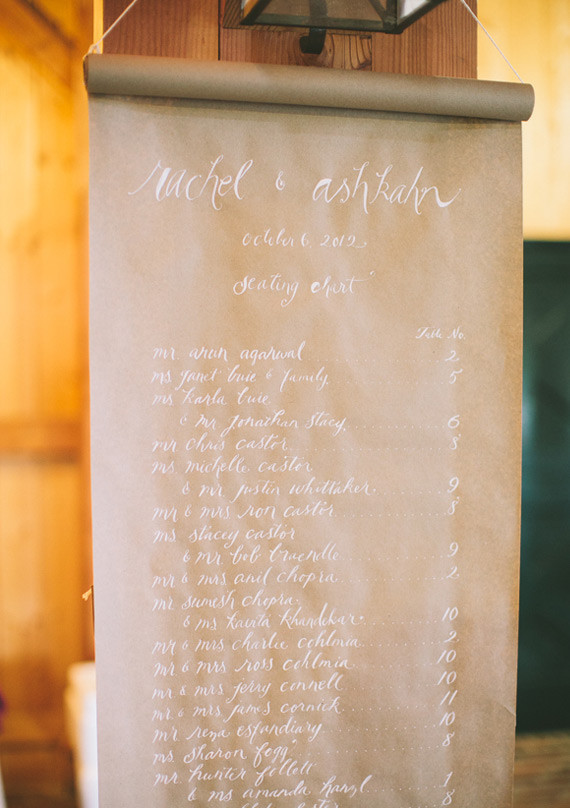 rachel & ashkahn
october 6, 2012
seating chart
Table No.
mr. arun agarwal 2
ms janet buie & family 5
ms karla buie
& mr. jonathan stacy 6
mr chris castor 8
ms. michelle castor
& mr. justin whittaker 9
mr & mrs ron castor 8
ms stacey castor
& mr bob 9
mr & mrs anil chopra 2
mr. sumesh chopra
& ms kavita khandekar 10
mr & mrs charlie cohlmia 2
mr & mrs ross cohlmia 10
mr & mrs jerry connell 10
mr & mrs james cornick 11
mr reza esfandiary 10
ms. sharon fogg 8
mr. hunter follett
& ms amanda 1
8